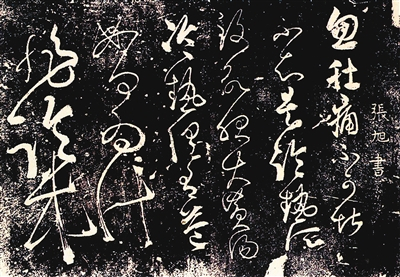 張旭書
忽肚痛不可堪
不知是冷熱所
致欲服大黃湯
冷熱俱有益
如何爲計
非臨床